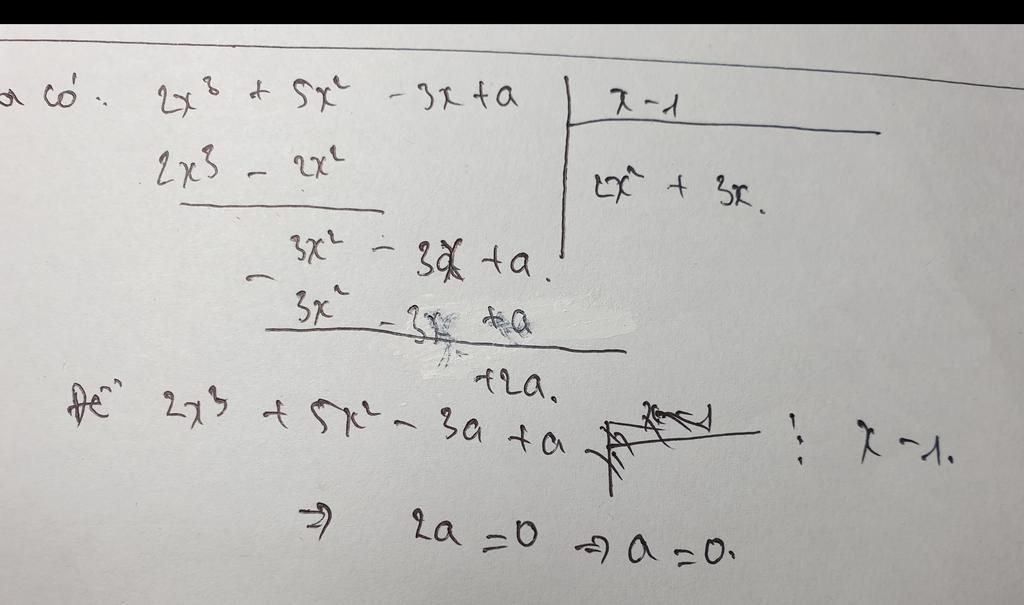 a có: 2x³ + 5x² - 3x + a | x - 1
2x³ - 2x² | 2x² + 3x.
- 3x² - 3x + a.
3x² - 3x + a
+2a.
Để 2x³ + 5x² - 3a + a ⋮ x - 1.
⇒ 2a = 0 ⇒ a = 0.